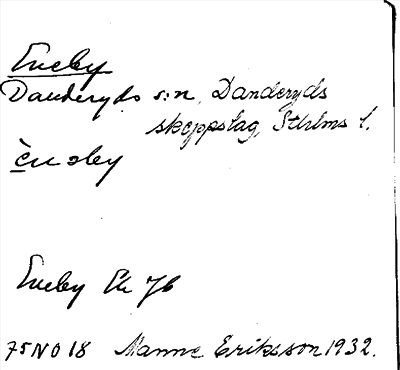 Eneby
Danderyds s:n, Danderyds
skeppslag, Sthlms l.
Eneby Ek 76
75NO18 Manne Eriksson 1932.